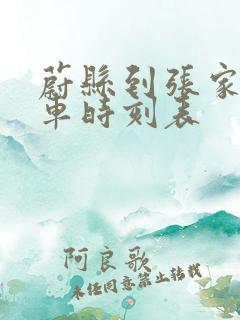 蔚縣到張家
車時刻表
阿良歌
未经同意禁止转载